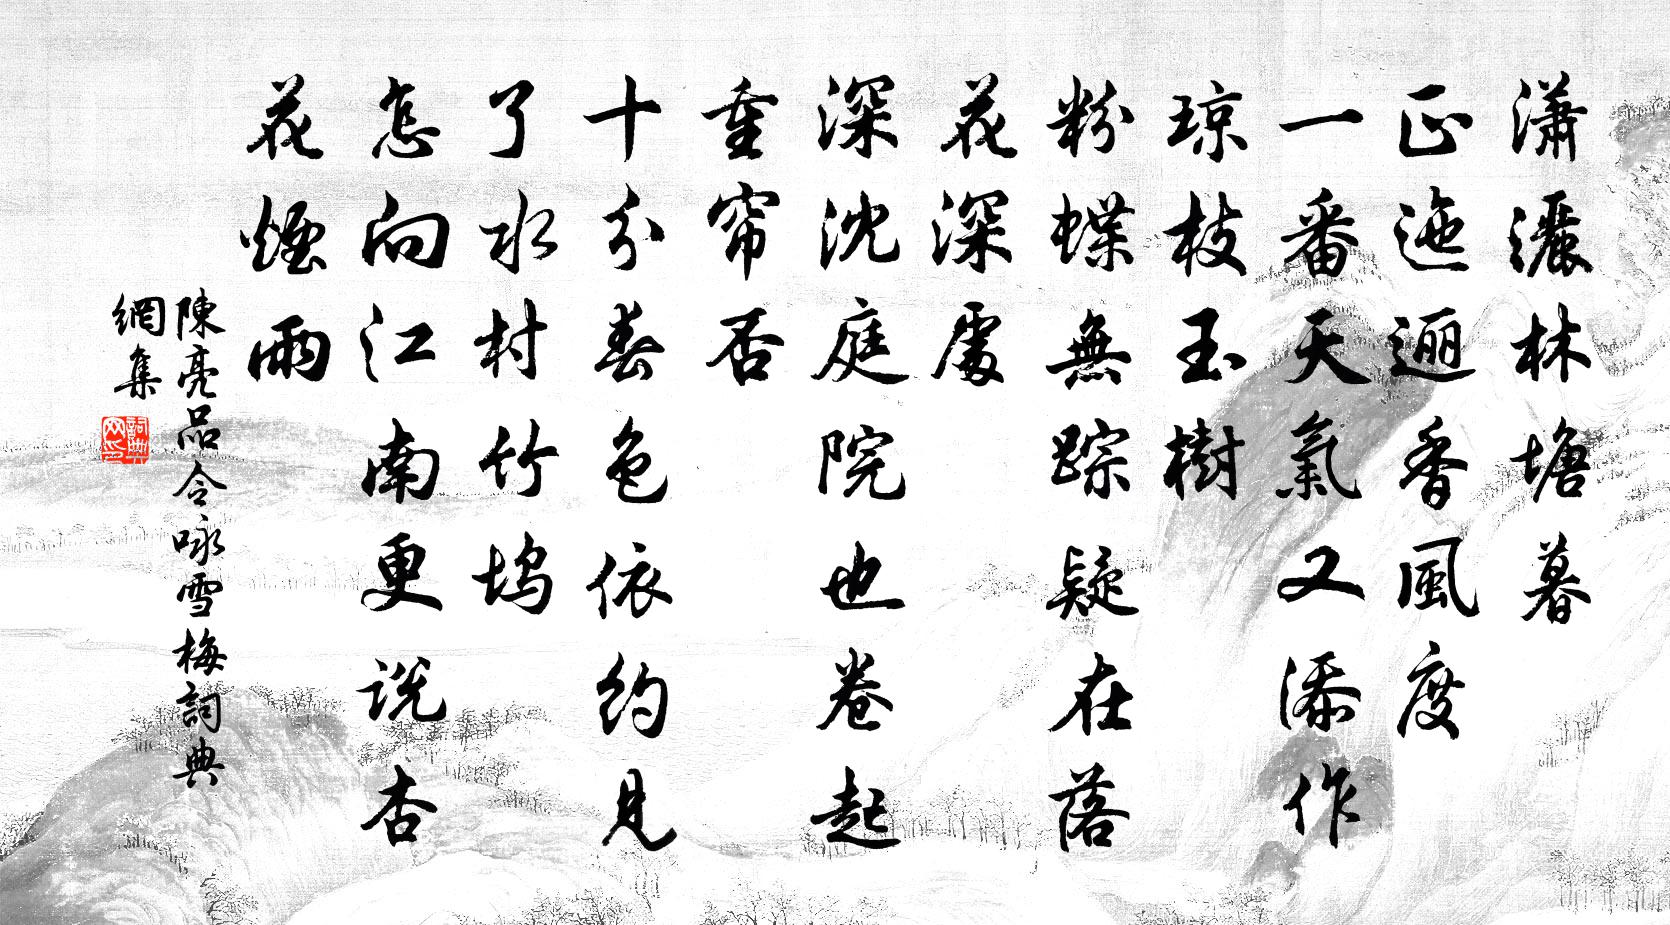 瀟灑林塘暮
正迤逦香風度
一番天氣又添作
琼枝玉樹
粉蝶無踪疑在落
花深處
深沈庭院也卷起
重帘否
十分春色依約見
了水村竹坞
怎向江南更説杏
花煙雨
陳亮品令咏雪梅詞典
網集
詞典